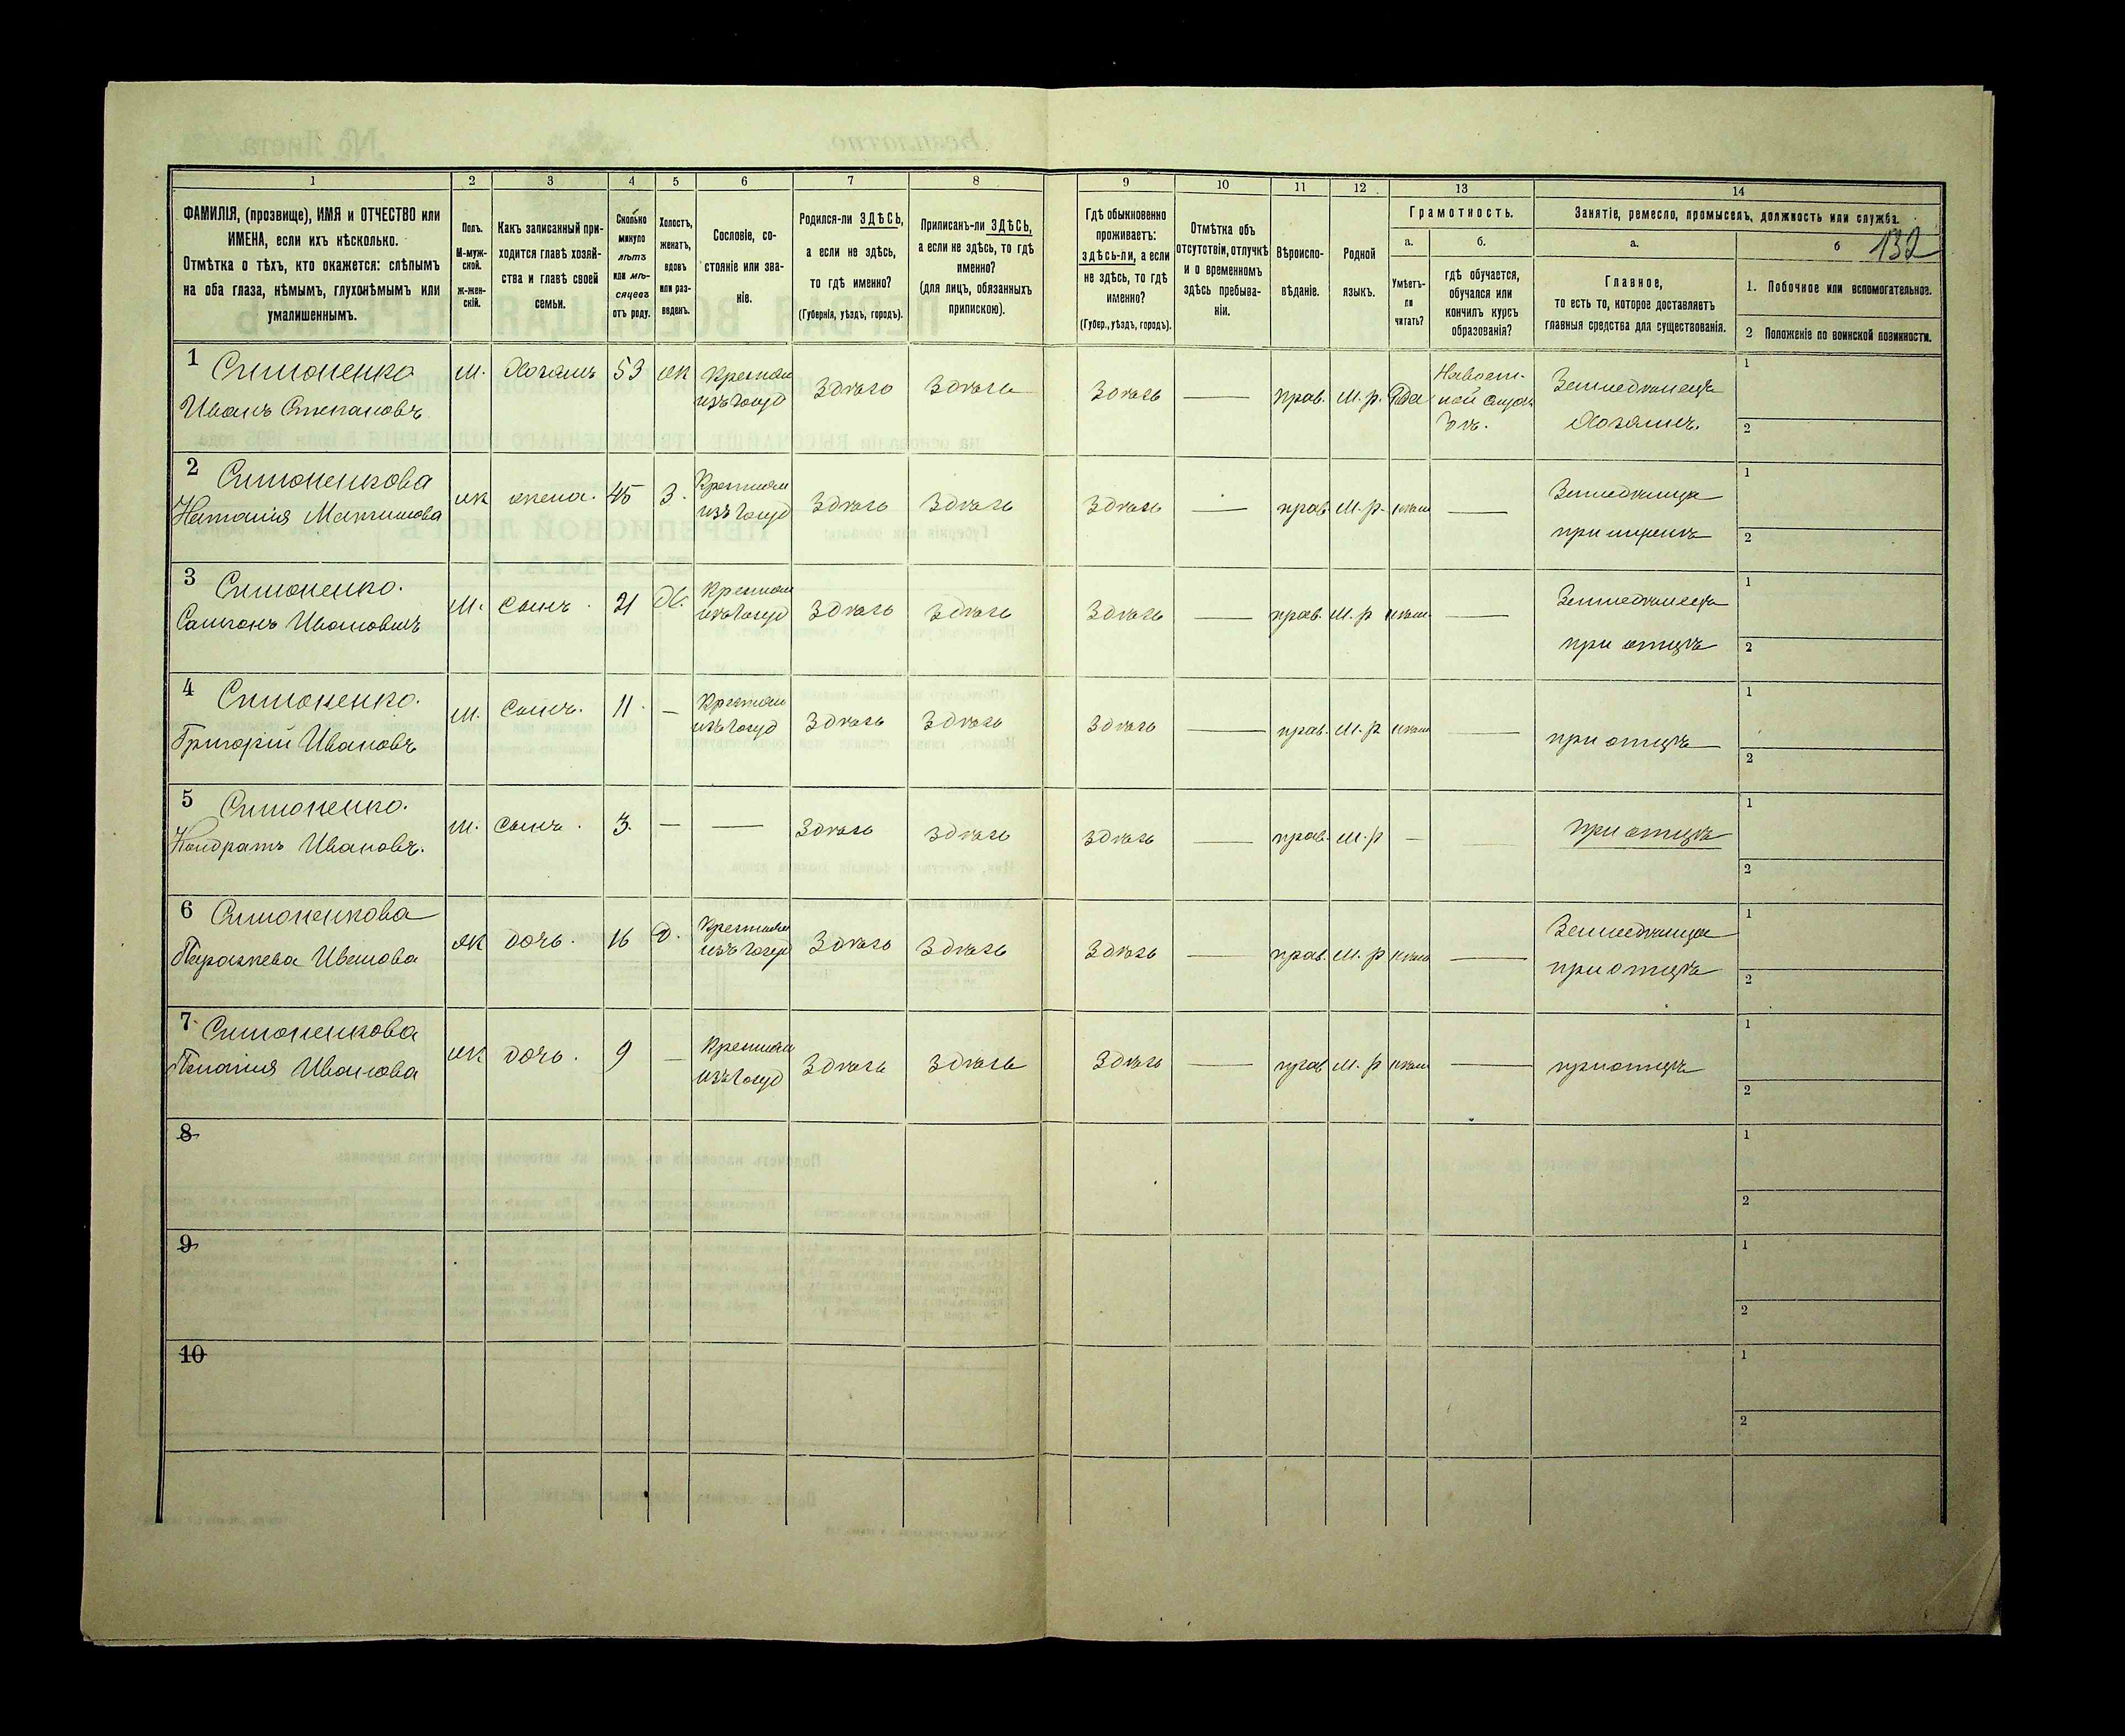 132
1 2 3 4 5 6 7 8 9 10 11 12 13 14
ФАМИЛІЯ, (прозвище), ИМЯ и ОТЧЕСТВО или
ИМЕНА, если ихъ нѣсколько.
Отмѣтка о тѣхъ, кто окажется: слѣпымъ
на оба глаза, нѣмымъ, глухонѣмымъ или
умалишеннымъ.
Полъ.
М-муж-
ской.
ж-жен-
скій.
Какъ записанный при-
ходится главѣ хозяй-
ства и главѣ своей
семьи.
Сколько
минуло
лѣтъ
или мѣ-
сяцевъ
отъ роду.
Холостъ,
женатъ,
вдовъ
или раз-
веденъ.
Сословіе, со-
стояніе или зва-
ніе.
Родился-ли ЗДѢСЬ,
а если не здѣсь,
то гдѣ именно?
(Губернія, уѣздъ, городъ).
Приписанъ-ли ЗДѢСЬ,
а если не здѣсь, то гдѣ
именно?
(для лицъ, обязанныхъ
припискою).
Гдѣ обыкновенно
проживаетъ:
здѣсь-ли, а если
не здѣсь, то гдѣ
именно?
(Губер., уѣздъ, городъ).
Отмѣтка объ
отсутствіи, отлучкѣ
и о временномъ
здѣсь пребыва-
ніи.
Вѣроиспо-
вѣданіе.
Родной
языкъ.
Грамотность.
а.
Умѣетъ-
ли
читать?
б.
гдѣ обучается,
обучался или
кончилъ курсъ
образованія?
Занятіе, ремесло, промыселъ, должность или служба.
а.
Главное,
то есть то, которое доставляетъ
главныя средства для существованія.
б
1. Побочное или вспомогательное.
2 Положеніе по воинской повинности.
1 Симоненко
Иванъ Степановъ
м. Хозяинъ 53 ж
Крестьян
изъ Госуд
Здѣсь Здѣсь Здѣсь — прав. м. р. Да
Земледѣлецъ
Хозяинъ.
1
2
2 Симоненкова
Наталія Мартинова
ж жена. 45 З.
Крестьян
изъ Госуд
Здѣсь Здѣсь Здѣсь — прав. м. р. —
Земледѣлица
при мужѣ
1
2
3 Симоненко.
Ивановичъ
м. Сынъ. 21 Х.
Крестьян
изъ Госуд
Здѣсь Здѣсь Здѣсь — прав. м. р —
Земледѣлецъ
при отцѣ
1
2
4 Симоненко.
Григорій Ивановъ
м. Сынъ. 11. —
Крестьян
изъ Госуд
Здѣсь Здѣсь Здѣсь — прав. м. р —
при отцѣ
1
2
5 Симоненко.
Кондратъ Ивановъ.
м. Сынъ. 3. — — Здѣсь Здѣсь Здѣсь — прав. м. р — —
при отцѣ
1
2
6 Симоненкова
Параскева Иванова
ж дочь. 16 Д.
Крестьян
изъ Госуд
Здѣсь Здѣсь Здѣсь — прав. м. р —
Земледѣлица
при отцѣ
1
2
7 Симоненкова
Иванова
ж дочь. 9 —
Крестьян
изъ Госуд
Здѣсь Здѣсь Здѣсь — прав м. р —
при отцѣ
1
2
8
1
2
9
1
2
10
1
2